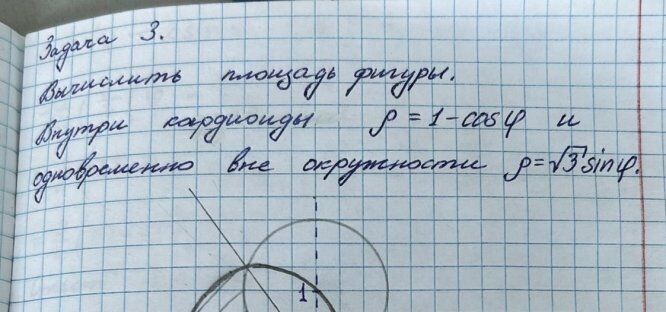 Задача 3.
Вычислить площадь фигуры.
Внутри кардиоиды ρ = 1 - cosφ и
одновременно вне окружности ρ = √3 sinφ.
1